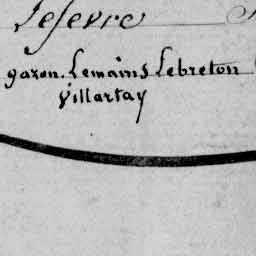 Lefevre
garon. Lemains Lebreton
Villartay